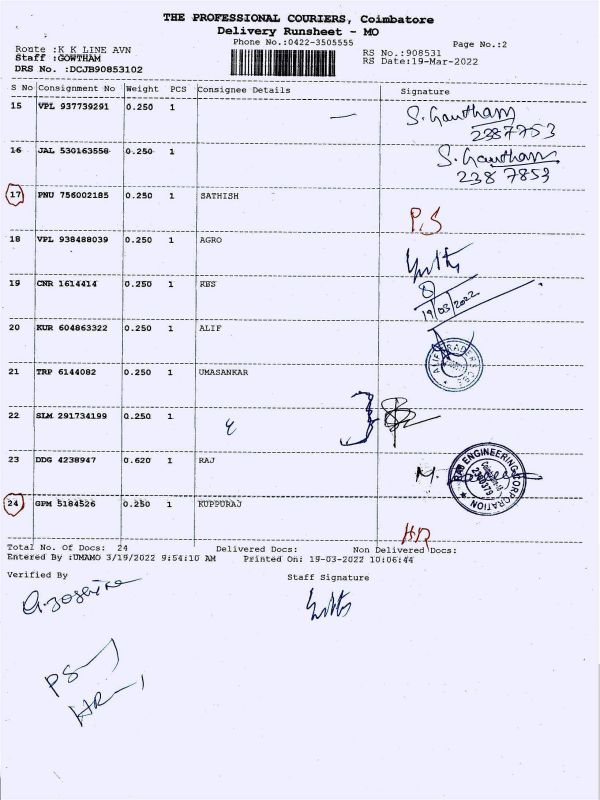 THE PROFESSIONAL COURIERS, Coimbatore
Delivery Runsheet - MO
Phone No.:0422-3505555
Page No.:2
Route :K K LINE AVN
Staff :GOWTHAM
DRS No. :DCJB90853102
RS No.:908531
RS Date:19-Mar-2022
S No Consignment No Weight PCS Consignee Details Signature
15 VPL 937739291 0.250 1 S. Gowtham
2387753
16 JAL 530163558 0.250 1 S. Gowtham
238 7853
17 PNU 756002185 0.250 1 SATHISH
P.S
18 VPL 938488039 0.250 1 AGRO
19 CNR 1614414 0.250 1 RBS
19/03/2022
20 KUR 604863322 0.250 1 ALIF
21 TRP 6144082 0.250 1 UMASANKAR
22 SLM 291734199 0.250 1
23 DDG 4238947 0.620 1 RAJ
ENGINEERING CORPORATION
24 GPM 5184526 0.250 1 KUPPURAJ
HR
Total No. Of Docs: 24 Delivered Docs: Non Delivered Docs:
Entered By :UMAMO 3/19/2022 9:54:10 AM Printed On: 19-03-2022 10:06:44
Verified By Staff Signature
PS
HR